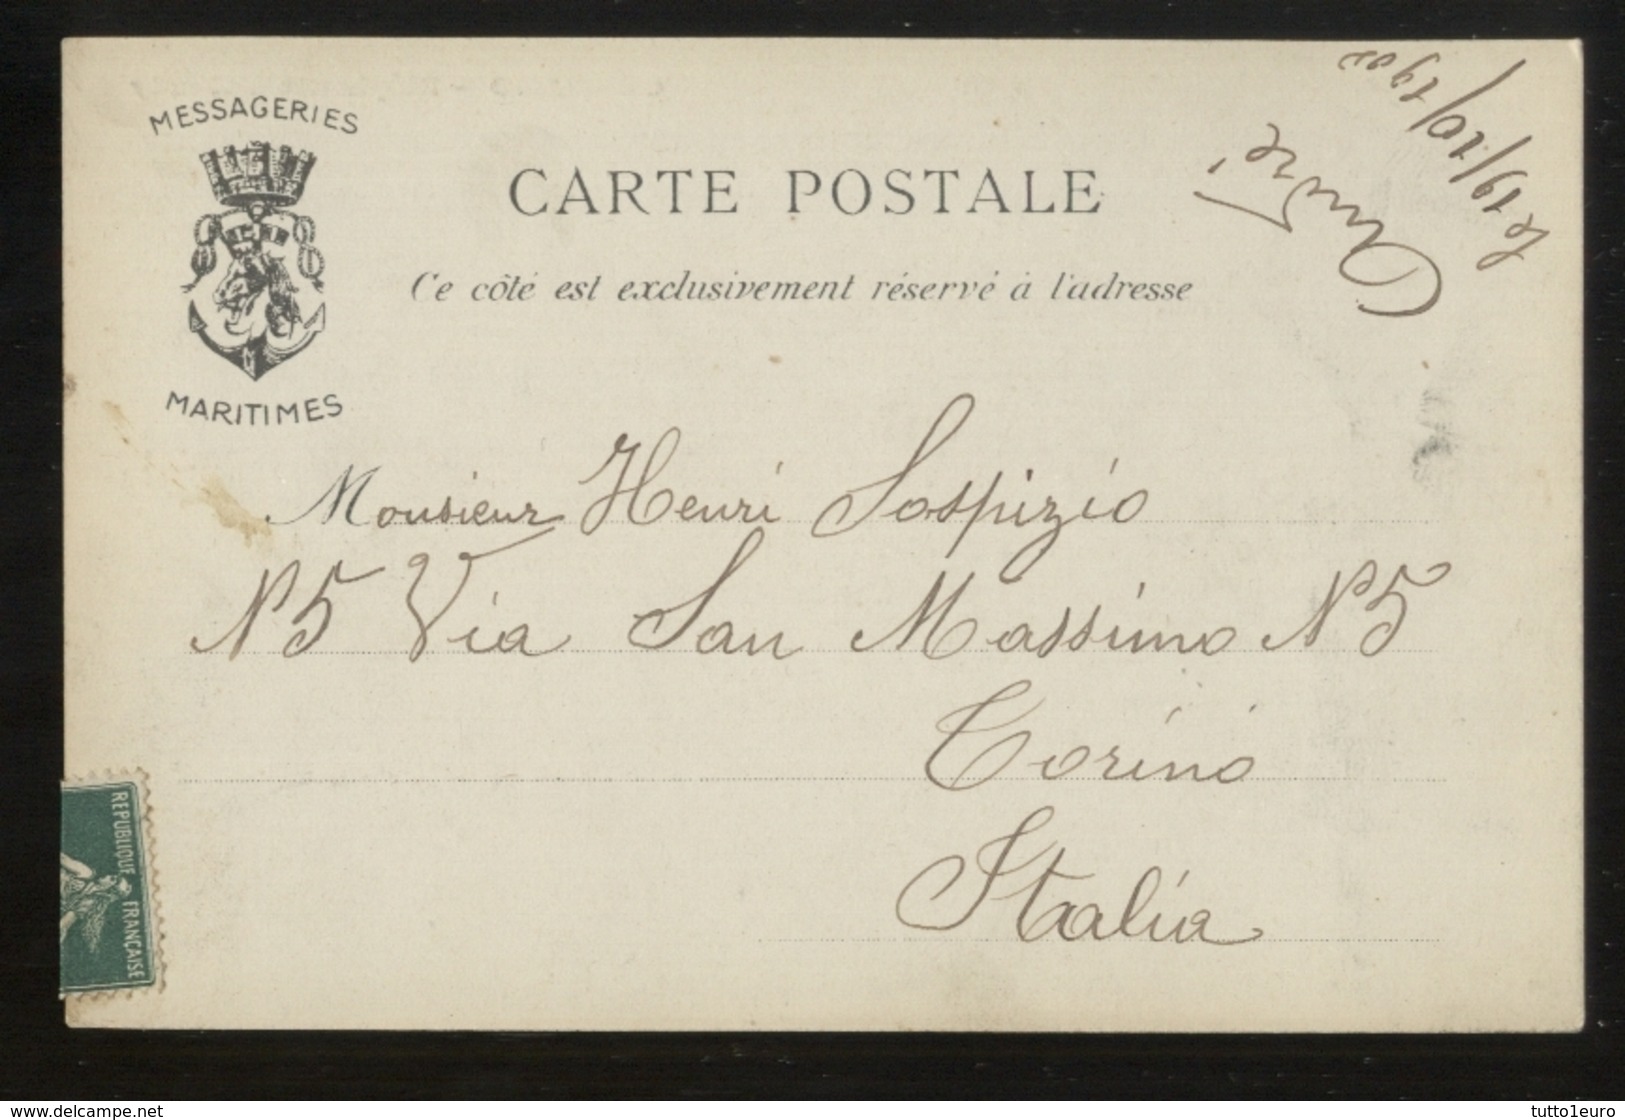 MESSAGERIES
MARITIMES
CARTE POSTALE
Ce côté est exclusivement réservé à l'adresse
André
le 19/10/190
Monsieur Henri Sospizio
N 5 Via San Massimo N 5
Torino
Italia
REPUBLIQUE FRANÇAISE
www.delcampe.net
tutto1euro